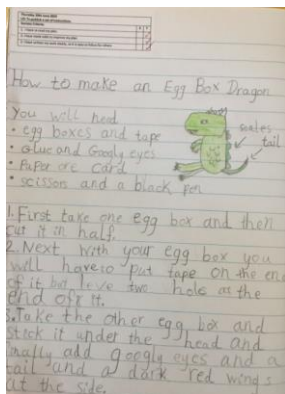 How to make an Egg Box Dragon
You will need
• egg boxes and tape
• Gluc and Googly eyes
• Paper ore card
• scissors and a black pen
scales
tail
1. First take one egg box and then
cut it in half.
2. Next with your egg box you
will have to put tape on the end
of it but leve two hole at the
end ofr it.
3. Take the other egg box and
stick it under the head and
finally add googly eyes and a
tail and a dark red wings
at the side.